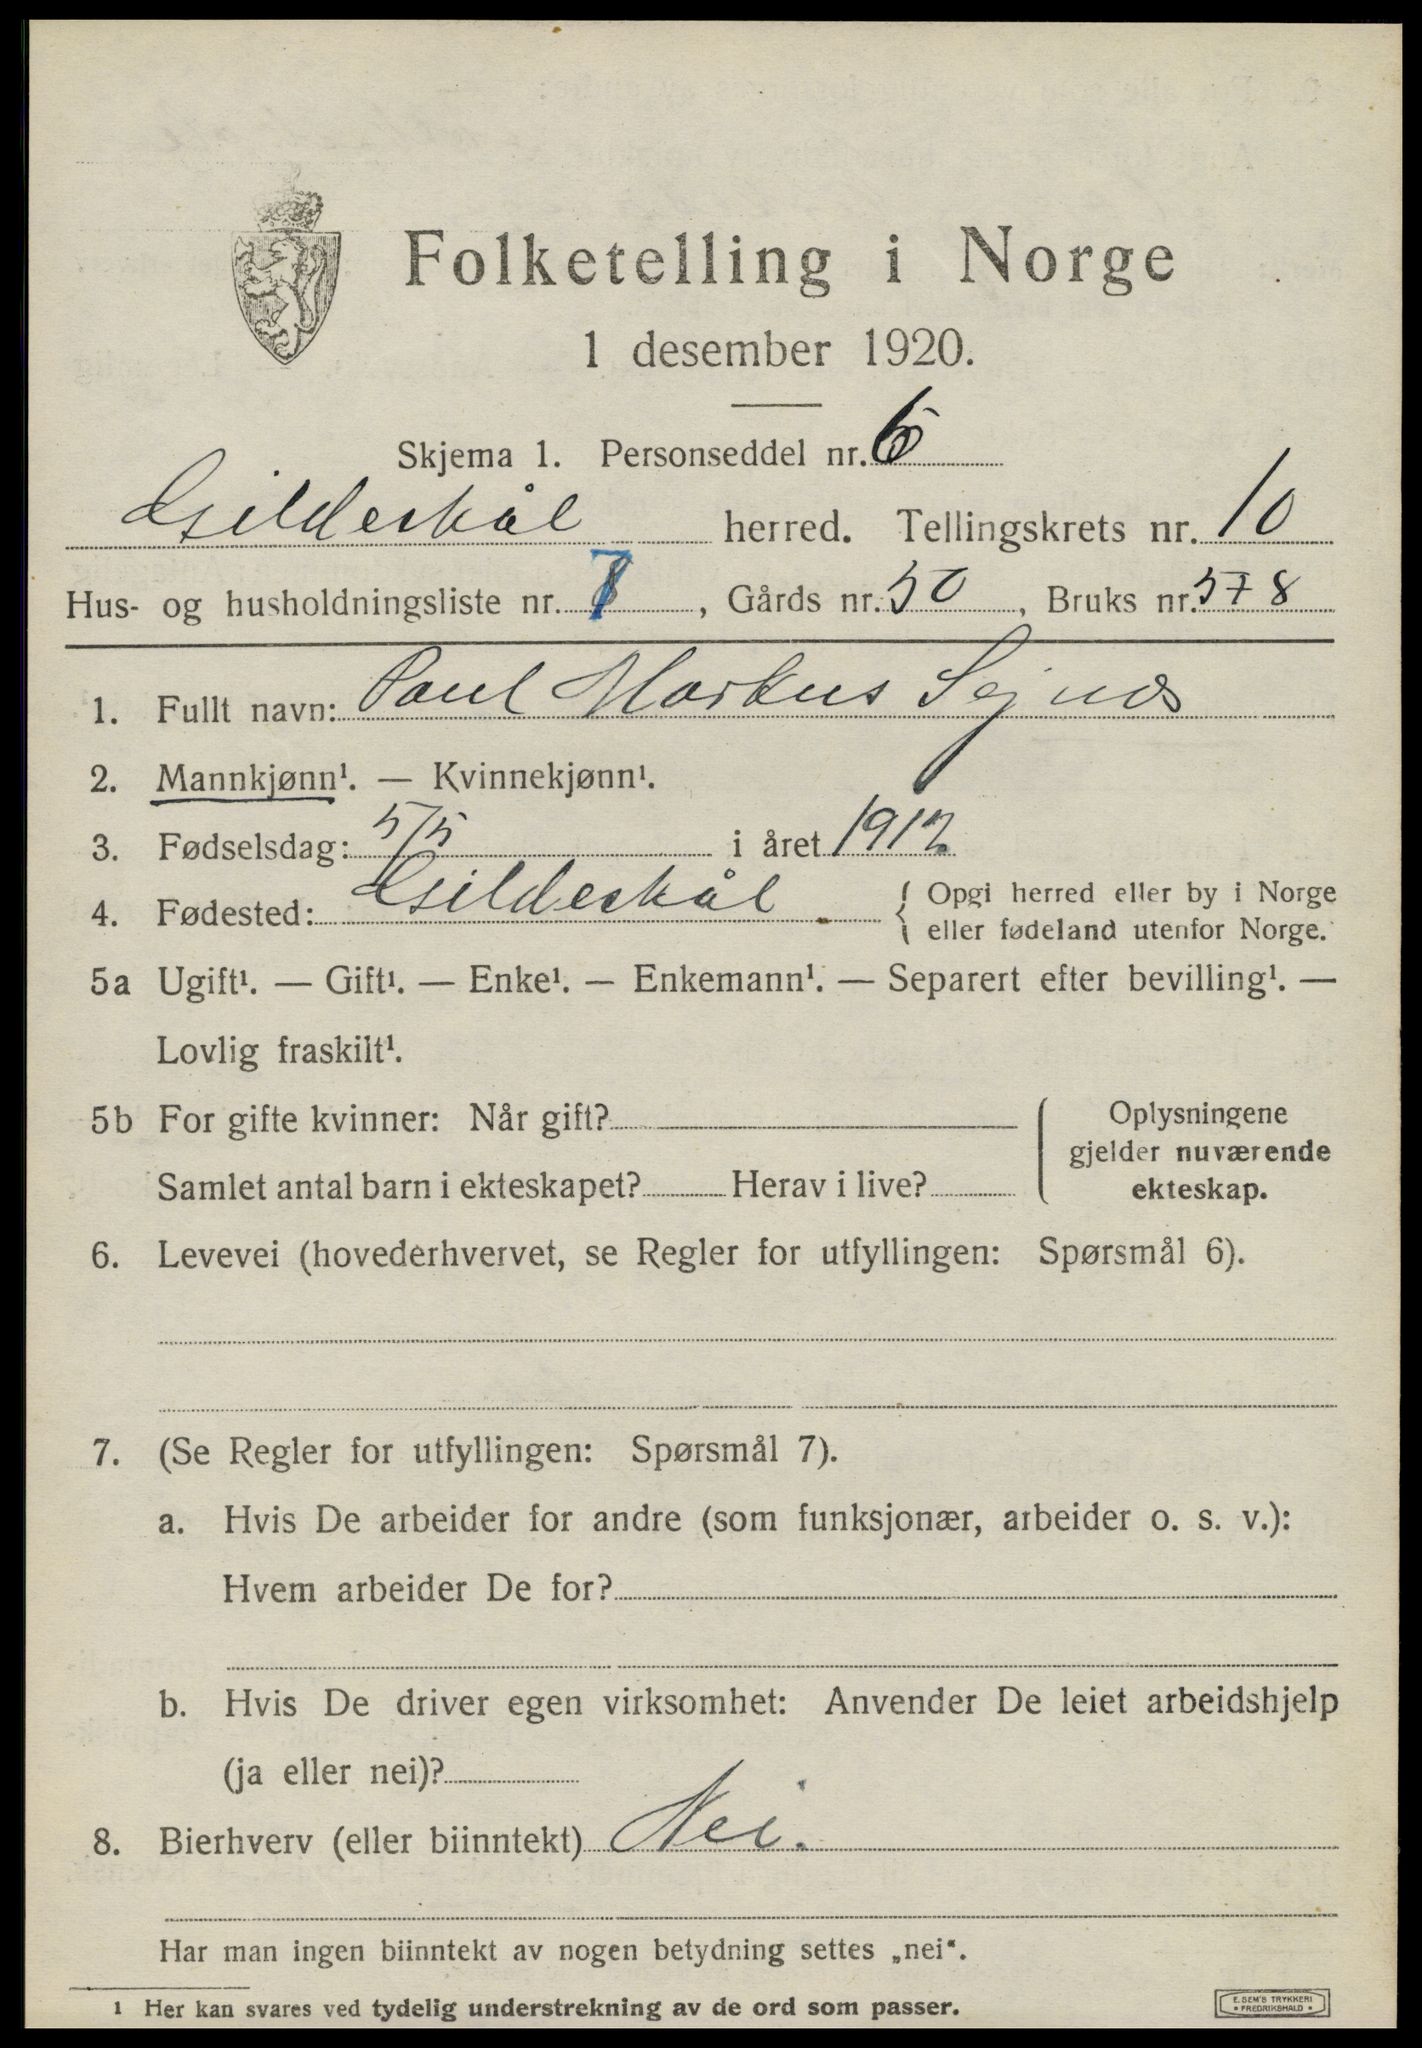 Folketelling i Norge
1 desember 1920.
Skjema 1. Personseddel nr. 6
Gildeskål herred. Tellingskrets nr. 10
Hus- og husholdningsliste nr. 7, Gårds nr. 50, Bruks nr. 5+8
1. Fullt navn: Paul Markus Sejnæs
2. Mannkjønn¹. — Kvinnekjønn¹.
3. Fødselsdag: 5/5 i året 1912
4. Fødested: Gildeskål { Opgi herred eller by i Norge
eller fødeland utenfor Norge.
5a Ugift¹. — Gift¹. — Enke¹. — Enkemann¹. — Separert efter bevilling¹. —
Lovlig fraskilt¹.
5b For gifte kvinner: Når gift?
Samlet antal barn i ekteskapet? Herav i live?
Oplysningene
gjelder nuværende
ekteskap.
6. Levevei (hovederhvervet, se Regler for utfyllingen: Spørsmål 6).
7. (Se Regler for utfyllingen: Spørsmål 7).
a. Hvis De arbeider for andre (som funksjonær, arbeider o. s. v.):
Hvem arbeider De for?
b. Hvis De driver egen virksomhet: Anvender De leiet arbeidshjelp
(ja eller nei)?
8. Bierhverv (eller biinntekt) Nei.
Har man ingen biinntekt av nogen betydning settes „nei“.
1 Her kan svares ved tydelig understrekning av de ord som passer.
E. SEM'S TRYKKERI
• FREDRIKSHALD •